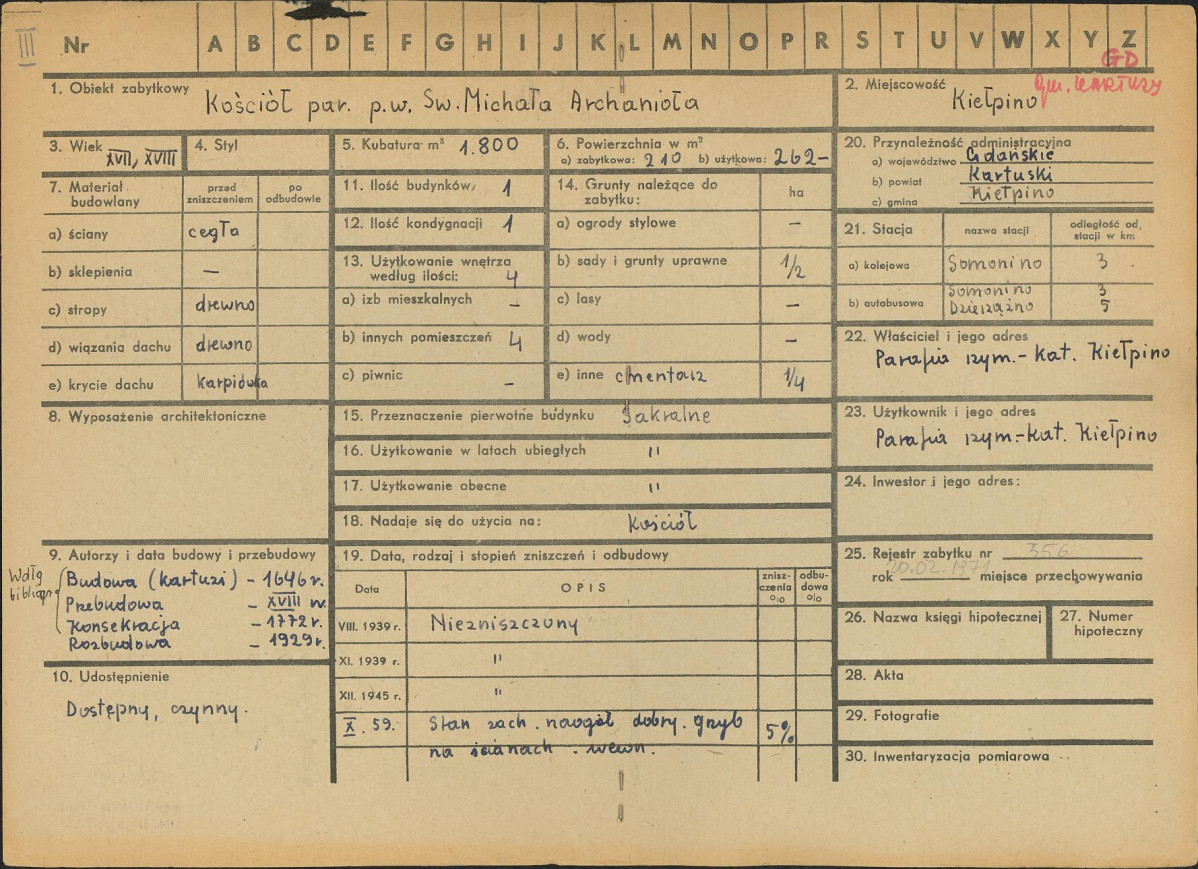 III
Nr A B C D E F G H I J K L M N O P R S T U V W X Y Z
GD
gm. KARTUZY
1. Obiekt zabytkowy Kościół par. p.w. Św. Michała Archanioła
2. Miejscowość Kiełpino
3. Wiek XVII, XVIII
4. Styl
5. Kubatura m³ 1.800
6. Powierzchnia w m²
a) zabytkowa: 210 b) użytkowa: 262-
7. Materiał budowlany
przed zniszczeniem
po odbudowie
a) ściany cegła
b) sklepienia —
c) stropy drewno
d) wiązania dachu drewno
e) krycie dachu karpiówka
8. Wyposażenie architektoniczne
9. Autorzy i data budowy i przebudowy
Wdłg
Budowa (kartuzi) - 1646 r.
Przebudowa - XVIII w.
Konsekracja - 1772 r.
Rozbudowa - 1929 r.
10. Udostępnienie
Dostępny, czynny.
11. Ilość budynków 1
12. Ilość kondygnacji 1
13. Użytkowanie wnętrza
według ilości: 4
a) izb mieszkalnych -
b) innych pomieszczeń 4
c) piwnic -
14. Grunty należące do
zabytku: ha
a) ogrody stylowe —
b) sady i grunty uprawne 1/2
c) lasy —
d) wody —
e) inne cmentarz 1/4
15. Przeznaczenie pierwotne budynku Sakralne
16. Użytkowanie w latach ubiegłych "
17. Użytkowanie obecne "
18. Nadaje się do użycia na: Kościół
19. Data, rodzaj i stopień zniszczeń i odbudowy
Data OPIS znisz-czenia % odbu-dowa %
VIII. 1939 r. Niezniszczony
XI. 1939 r. "
XII. 1945 r. "
X. 59. Stan zach. naogół dobry. Grzyb 5%
na ścianach . wewn.
20. Przynależność administracyjna
a) województwo Gdańskie
b) powiat Kartuski
c) gmina Kiełpino
21. Stacja nazwa stacji odległość od stacji w km
a) kolejowa Somonino 3
b) autobusowa Somonino 3
Dzierżążno 5
22. Właściciel i jego adres
Parafia rzym.-kat. Kiełpino
23. Użytkownik i jego adres
Parafia rzym.-kat. Kiełpino
24. Inwestor i jego adres:
25. Rejestr zabytku nr 356
rok 20.02.1971 miejsce przechowywania
26. Nazwa księgi hipotecznej
27. Numer
hipoteczny
28. Akta
29. Fotografie
30. Inwentaryzacja pomiarowa